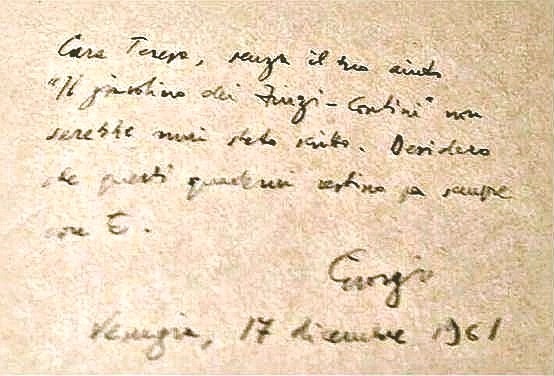 Cara Teresa, senza il tuo aiuto
"Il giardino dei Finzi-Contini" non
sarebbe mai stato scritto. Desidero
che questi quaderni restino per sempre
con te.
Giorgio
Venezia, 17 dicembre 1961